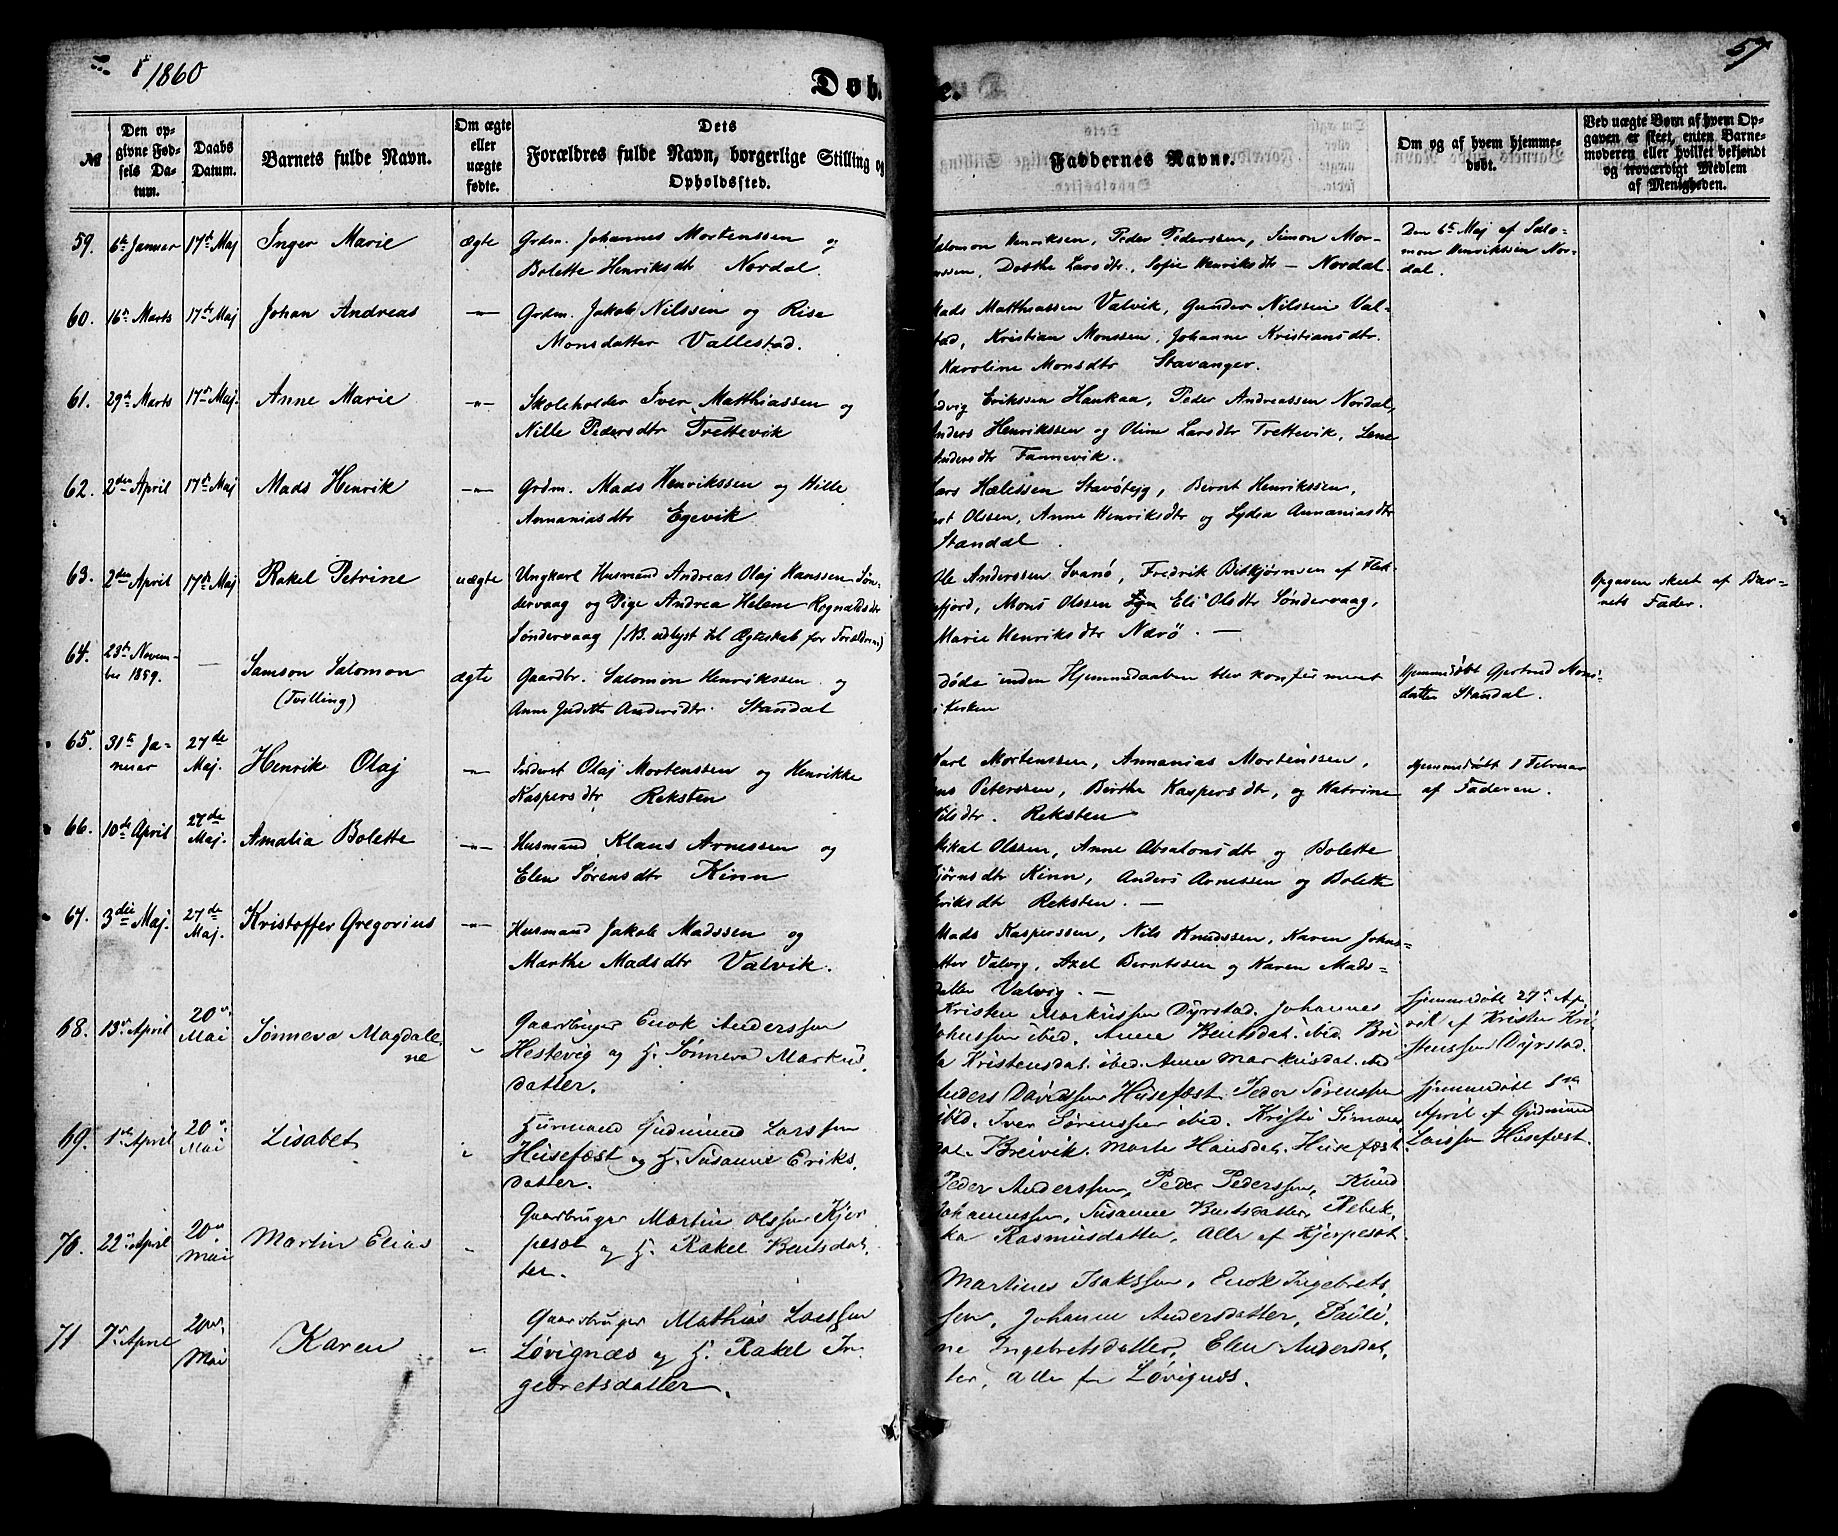 1860
Døb. e.
57
№
Den op-
givne Fød-
sels Da-
tum.
Daabs
Datum.
Barnets fulde Navn.
Om ægte
eller
uægte
fødte.
Dets
Forældres fulde Navn, borgerlige Stilling og
Opholdssted.
Faddernes Navne.
Om og af hvem hjemme-
døbt.
Ved uægte Børn af hvem Op-
gaven er skeet, enten Barne-
moderen eller hvilket bekjendt
og troværdigt Medlem
af Menigheden.
59. 6te Januar 17de Maj Inger Marie ægte
Grdm. Johannes Mortenssen og
Bolette Henriksdtr Nordal.
Salomon Henriksen, Peder Pederssen, Simon Mor-
Dorthe Larsdtr., Sofie Henriksdtr — Nordal.
Den 6te Maj af Salo-
mon Henrikssen Nor-
dal.
60. 16de Marts 17de Maj Johan Andreas —"—
Grdm. Jakob Nilssen og Rise
Monsdatter Vallestad.
Mads Matthiassen Valvik, Gunder Nilssen Val-
stad, Kristian Monssen, Johanne Kristiansdtr.
Karoline Monsdtr Stavanger.
61. 29de Marts 17de Maj. Anne Marie —"—
Skoleholder Iver Matthiassen og
Nille Pedersdtr Trettevik
Erikssen Haukaa, Peder Andreassen Nordal,
Anders Henrikssen og Oline Larsdtr Trettevik, Lene
Andersdtr Fannevik.
62. 2den April 17de Maj Mads Henrik —"—
Grdm. Mads Henrikssen og Hille
Annaniasdtr Egevik
Lars Stavøtejg, Bernt Henrikssen,
Olssen, Anne Henriksdtr og Lydia Annaniasdtr
Standal.
63. 2den April 17de Maj Rakel Petrine uægte
Ungkarl Husmand Andreas Olaj Hanssen Søn-
dervaag og Pige Andrea Helene Rognaldsdtr
Søndervaag (NB. udlyst til Ægteskab for Forældrene)
Ole Anderssen Svanø, Fredrik
fjord, Mons Olssen Eli Olsdtr Søndervaag,
Marie Henriksdtr Nærø. —
Opgaven skeet af Bar-
nets Fader.
64. 23de Novem-
ber 1859. — Samson Salomon
(Tvilling) ægte
Gaardbr. Salomon Henrikssen og
Anne Judith Andersdtr. Standal
døde inden Hjemmedaaben blev konfirmeret
i Kirken
Hjemmedøbt Gjertrud Mons-
datter Standal.
65. 31te Ja-
nuar 27de
Maj. Henrik Olaj —"—
Inderst Olaj Mortenssen og Henrikke
Kaspersdtr Reksten
Karl Mortenssen, Annanias Mortenssen,
Peterssen, Birthe Kaspersdtr, og Katrine
Nilsdtr. Reksten
Hjemmedøbt 1 Februar
af Faderen.
66. 10de April 27de
Maj. Amalia Bolette —"—
Husmand Klaus Arnessen og
Elen Sørensdtr Kinn
Mikal Olssen, Anne Absalonsdtr og Bolette
Bjørnsdtr Kinn, Anders Arnessen og Bolette
Eriksdtr Reksten. —
67. 3die Maj. 27de
Maj. Kristoffer Gregorius —"—
Husmand Jakob Madssen og
Marthe Madsdtr Valvik.
Mads Kasperssen, Nils Knudssen, Karen Johns-
datter Valvig, Axel Berntssen og Karen Mads-
datter Valvig. —
68. 13de April 20de
Mai Sønneva Magdale-
ne "
Gaardbruger Enok Anderssen
Hestevig og H. Sønneva Markus-
datter.
Kristen Markussen Dyrstad. Johannes
ibid. Anne Bentsdat. ibid. Bri-
ta Kristensdat. ibid. Anne Markusdat. ibid
Hjemmedøbt 27de Ap-
ril af Kristen Kri-
stenssen Dyrstad.
69. 1ste April 20de
Mai Lisabet "
Husmand Gudmund Larssen
Husefæst og H. Susanne Eriks-
datter.
Anders Davidssen Husefæst. Peder Sørenssen
ibid. Iver Sørenssen ibid. Kristi Simons-
dat. Breivik. Marte Hansdat. Husefæst
Hjemmedøbt 5te
April af Gudmund
Larssen Husefæst.
70. 22de April 20de
Mai Martin Elias "
Gaardbruger Martin Olssen Kjer-
pesæt og H. Rakel Bentsdat-
ter.
Peder Anderssen, Peder Pederssen, Knud
Johannessen, Susanne Bentsdatter, Rebek-
ka Rasmusdatter, Alle af Kjerpesæt.
71 7de April 20de
Mai Karen "
Gaardbruger Mathias Larssen
Løvignæs og H. Rakel In-
gebretsdatter.
Martines Isakssen, Enok Ingebrets-
sen, Johanne Andersdatter, Pauli-
ne Ingebretsdatter, Elen Andersdat-
ter, alle fra Løvignæs.